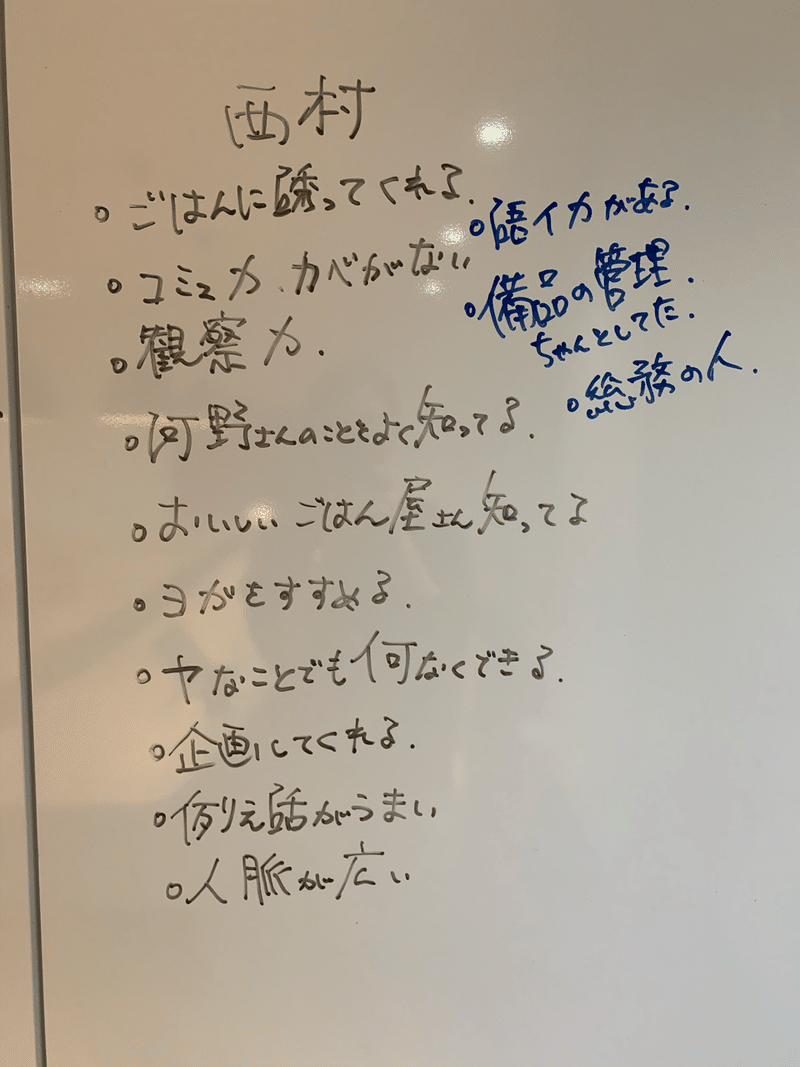 西村
○ごはんに誘ってくれる.
○コミュ力、カベがない
○観察力.
○河野さんのことをよく知ってる.
○おいしい ごはん屋さん知ってる
○ヨガをすすめる.
○ヤなことでも何なくできる.
○企画してくれる.
○例え話がうまい
○人脈が広い
○語イ力がある.
○備品の管理.
ちゃんとしてた.
○総務の人.